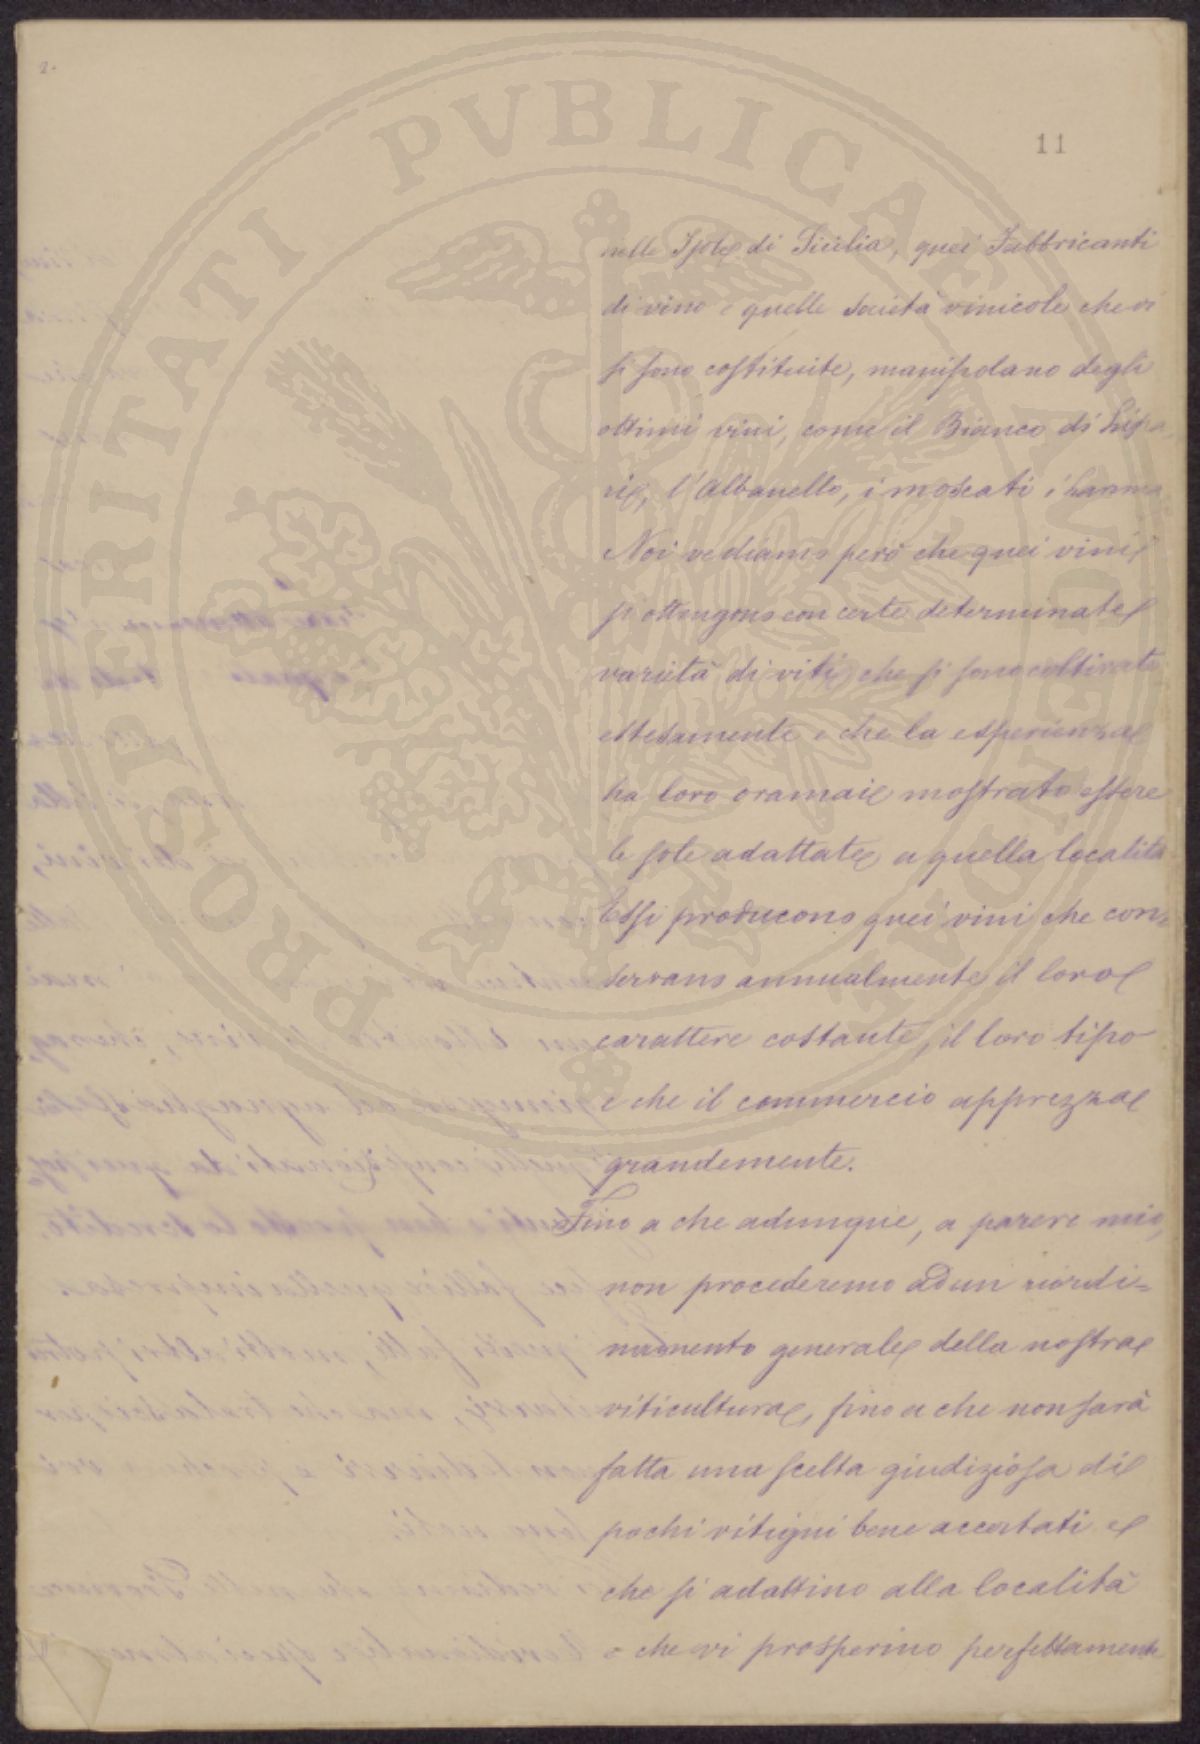 2.
11
PROSPERITATI PVBLICAE AVGENDAE
nelle Isole di Sicilia, quei Fabbricanti
di vino e quelle società vinicole che vi
si sono costituite, manipolano degli
ottimi vini, come il Bianco di Lipa
ri, l'Albanello, i moscati i
Noi vediamo però che quei vini
si ottengono con certe determinate
varietà di viti che si sono coltivate
estesamente e che la esperienza
ha loro oramai mostrato essere
le sole adattate a quella località
Essi producono quei vini che con=
servano annualmente il loro
carattere costante, il loro tipo
e che il commercio apprezza
grandemente.
Fino a che adunque, a parere mio,
non procederemo ad un riordi=
namento generale della nostra
viticultura, fino a che non sarà
fatta una scelta giudiziosa di
pochi vitigni bene accertati e
che si adattino alla località
e che vi prosperino perfettamente